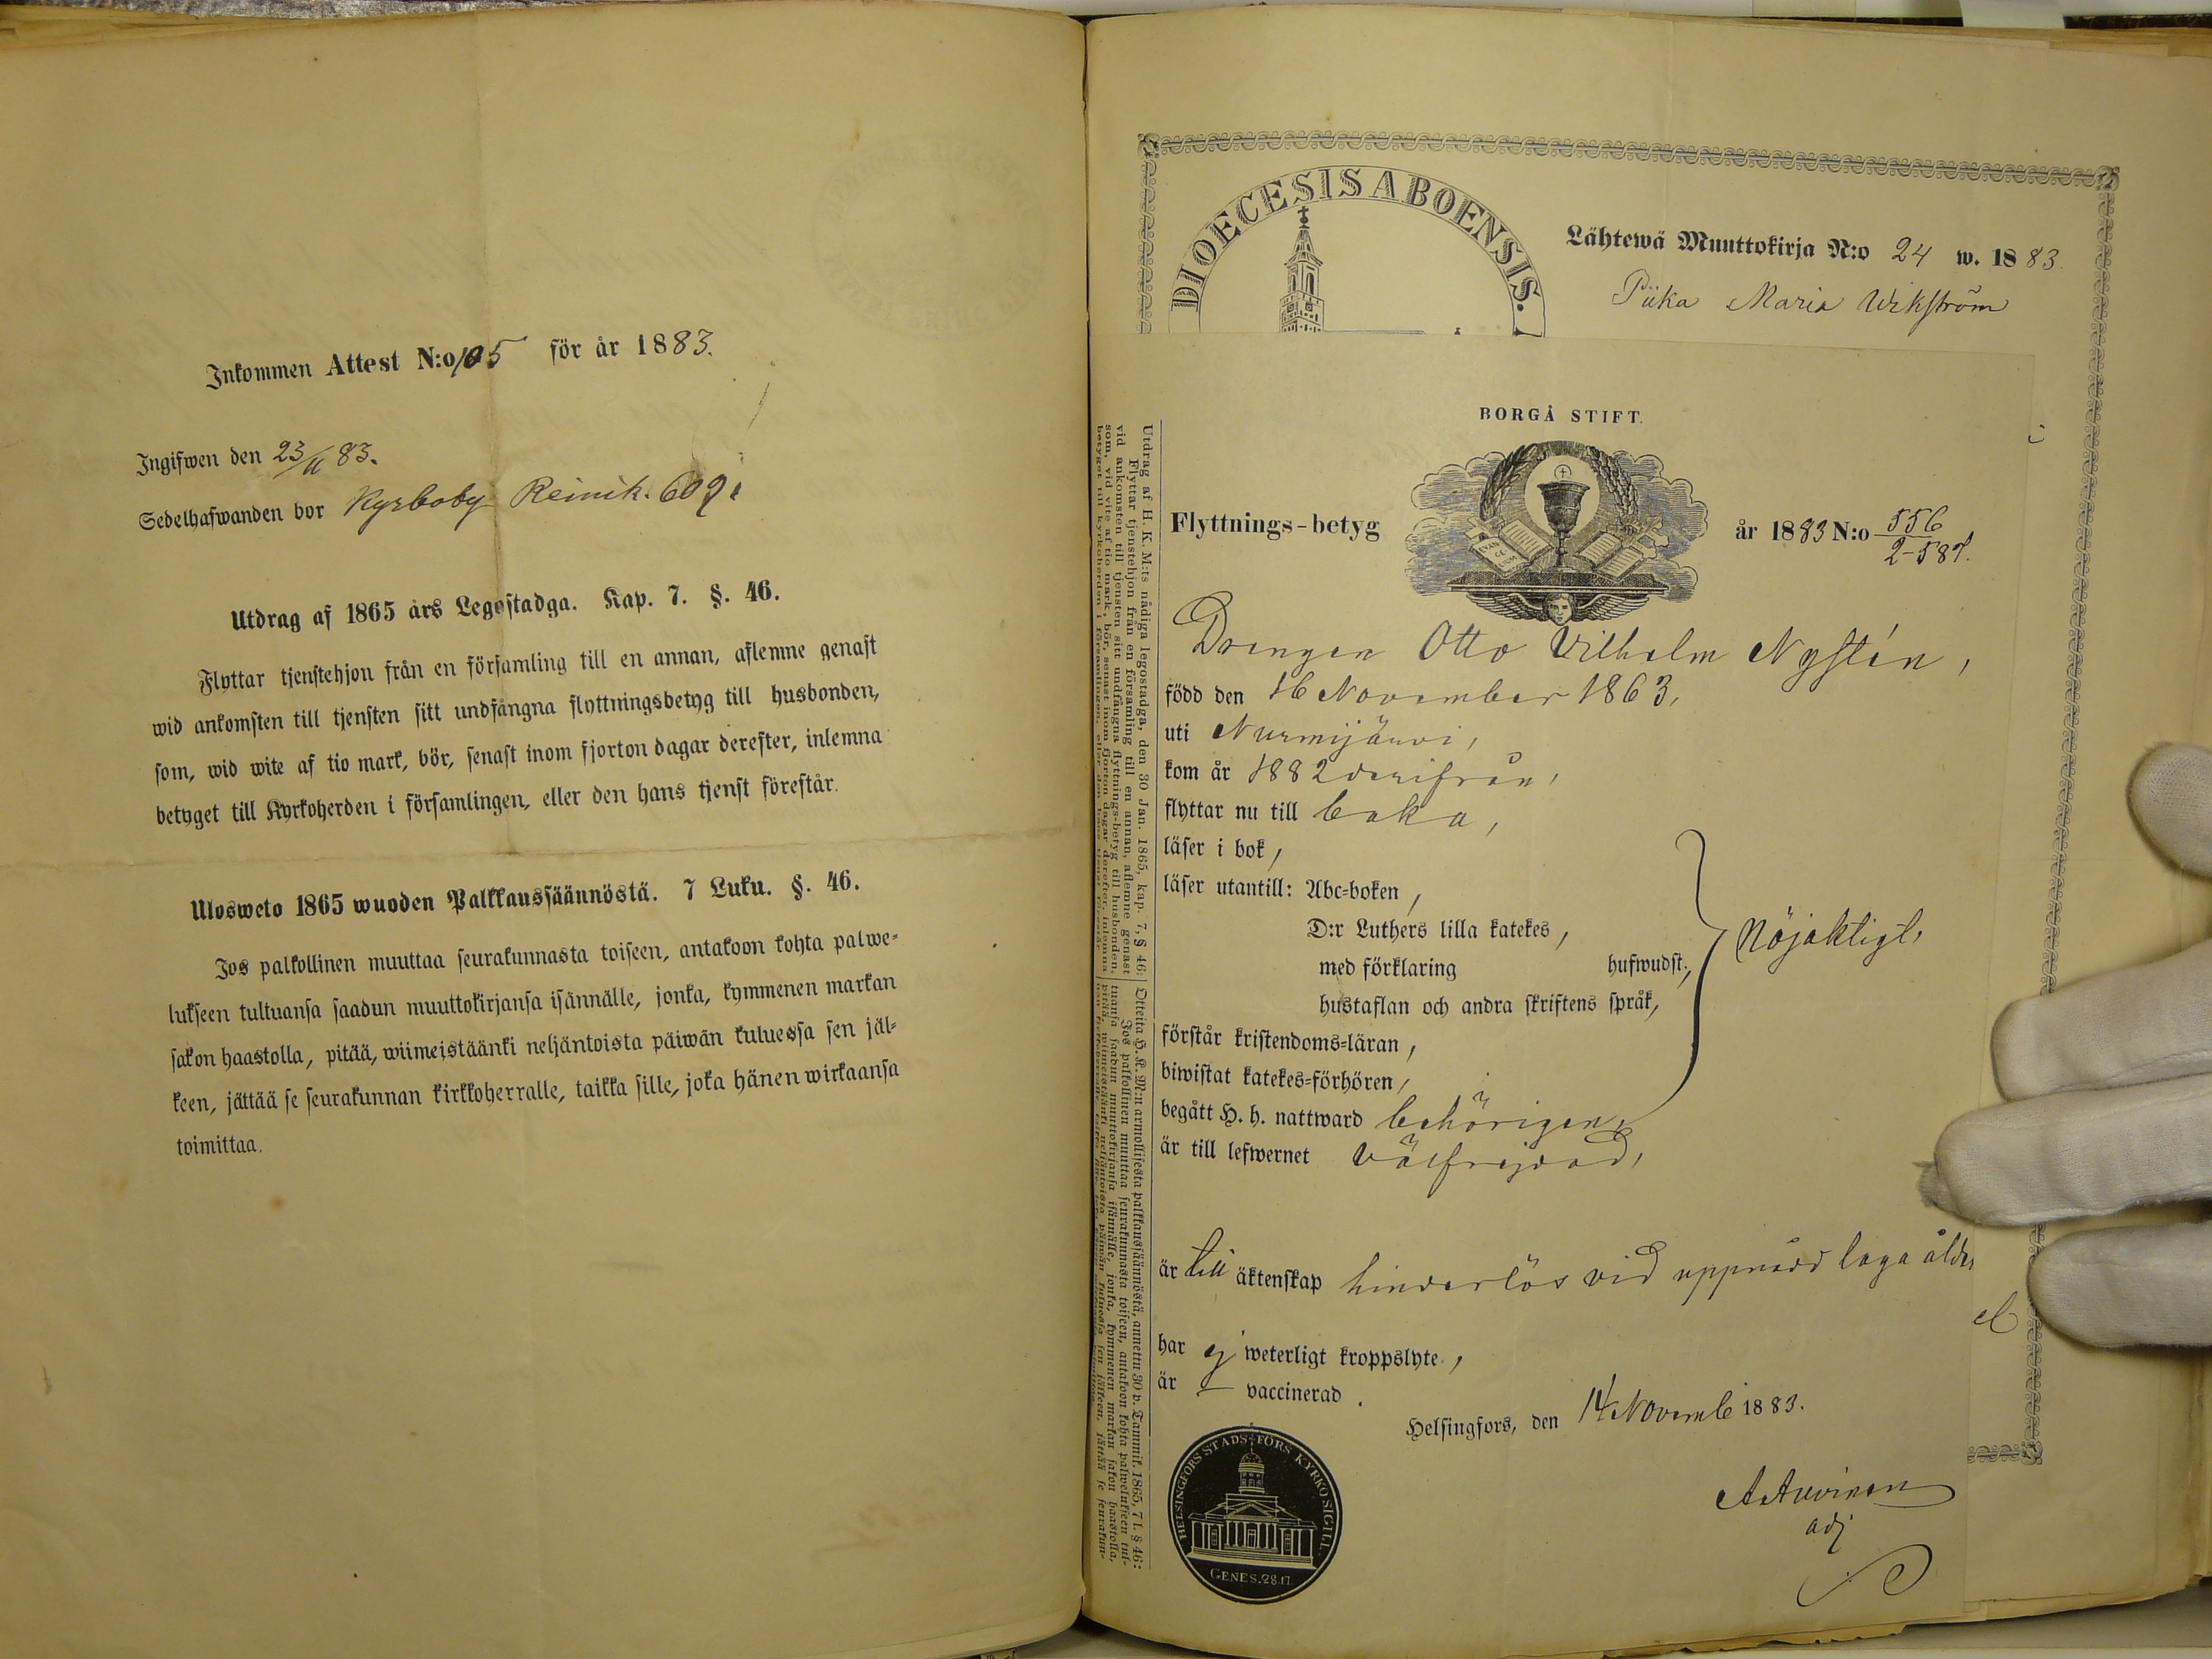 Inkommen Attest N:o 105 för år 1883.
Ingifwen den 23/11 83.
Sedelhafwanden bor Kyrkoby Reinik. 609.
Utdrag af 1865 års Legostadga. Kap. 7. §. 46.
Flyttar tjenstehjon från en församling till en annan, aflemne genast
wid ankomsten till tjensten sitt undfångna flyttningsbetyg till husbonden,
som, wid wite af tio mark, bör, senast inom fjorton dagar derefter, inlemna
betyget till Kyrkoherden i församlingen, eller den hans tjenst förestår.
Ulosweto 1865 wuoden Palkkaussäännöstä. 7 Luku. §. 46.
Jos palkollinen muuttaa seurakunnasta toiseen, antakoon kohta palwe-
lukseen tultuansa saadun muuttokirjansa isännälle, jonka, kymmenen markan
sakon haastolla, pitää, wiimeistäänki neljäntoista päiwän kuluessa sen jäl-
keen, jättää se seurakunnan kirkkoherralle, taikka sille, joka hänen wirkaansa
toimittaa.
DIOECESIS ABOENSIS.
Lähtewä Muuttokirja N:o 24 w. 1883.
Piika Maria Wikström
BORGÅ STIFT.
Flyttnings-betyg år 1883 N:o 556
2-587.
Drengen Otto Vilhelm Nystén,
född den 16 November 1863,
uti Nurmijärvi,
kom år 1882 derifrån,
flyttar nu till Esbo,
läser i bok,
läser utantill: Abc-boken,
D:r Luthers lilla katekes,
med förklaring hufwudst.,
hustaflan och andra skriftens språk,
Nöjaktigt,
förstår kristendoms-läran,
biwistat katekes-förhören,
begått H. h. nattward behörigen,
är till lefwernet välfrejdad,
är till äktenskap hinderlös vid uppnådd laga ålder
har ej weterligt kroppslyte,
är — vaccinerad.
Helsingfors, den 14 Novemb 1883.
A Auvinen
adj
HELSINGFORS STADS FÖRS KYRKO SIGILL.
GENES. 28.17
Utdrag af H. K. M:ts nådiga legostadga, den 30 Jan. 1865, kap. 7, § 46:
Flyttar tjenstehjon från en församling till en annan, aflemne genast
vid ankomsten till tjensten sitt undfångna flyttnings-betyg till husbonden,
som, vid vite af tio mark, bör, senast inom fjorton dagar derefter, inlemna
betyget till kyrkoherden i församlingen,
Otteita H. K. M:n armollisesta palkkaussäännöstä, annettu 30 p. Tammik. 1865, 7 l. § 46:
Jos palkollinen muuttaa seurakunnasta toiseen, antakoon kohta palwelukseen tul-
tuansa saadun muuttokirjansa isännälle, jonka, kymmenen markan sakon haastolla,
pitää, wiimeistäänki neljäntoista päiwän kuluessa sen jälkeen, jättää se seurakun-